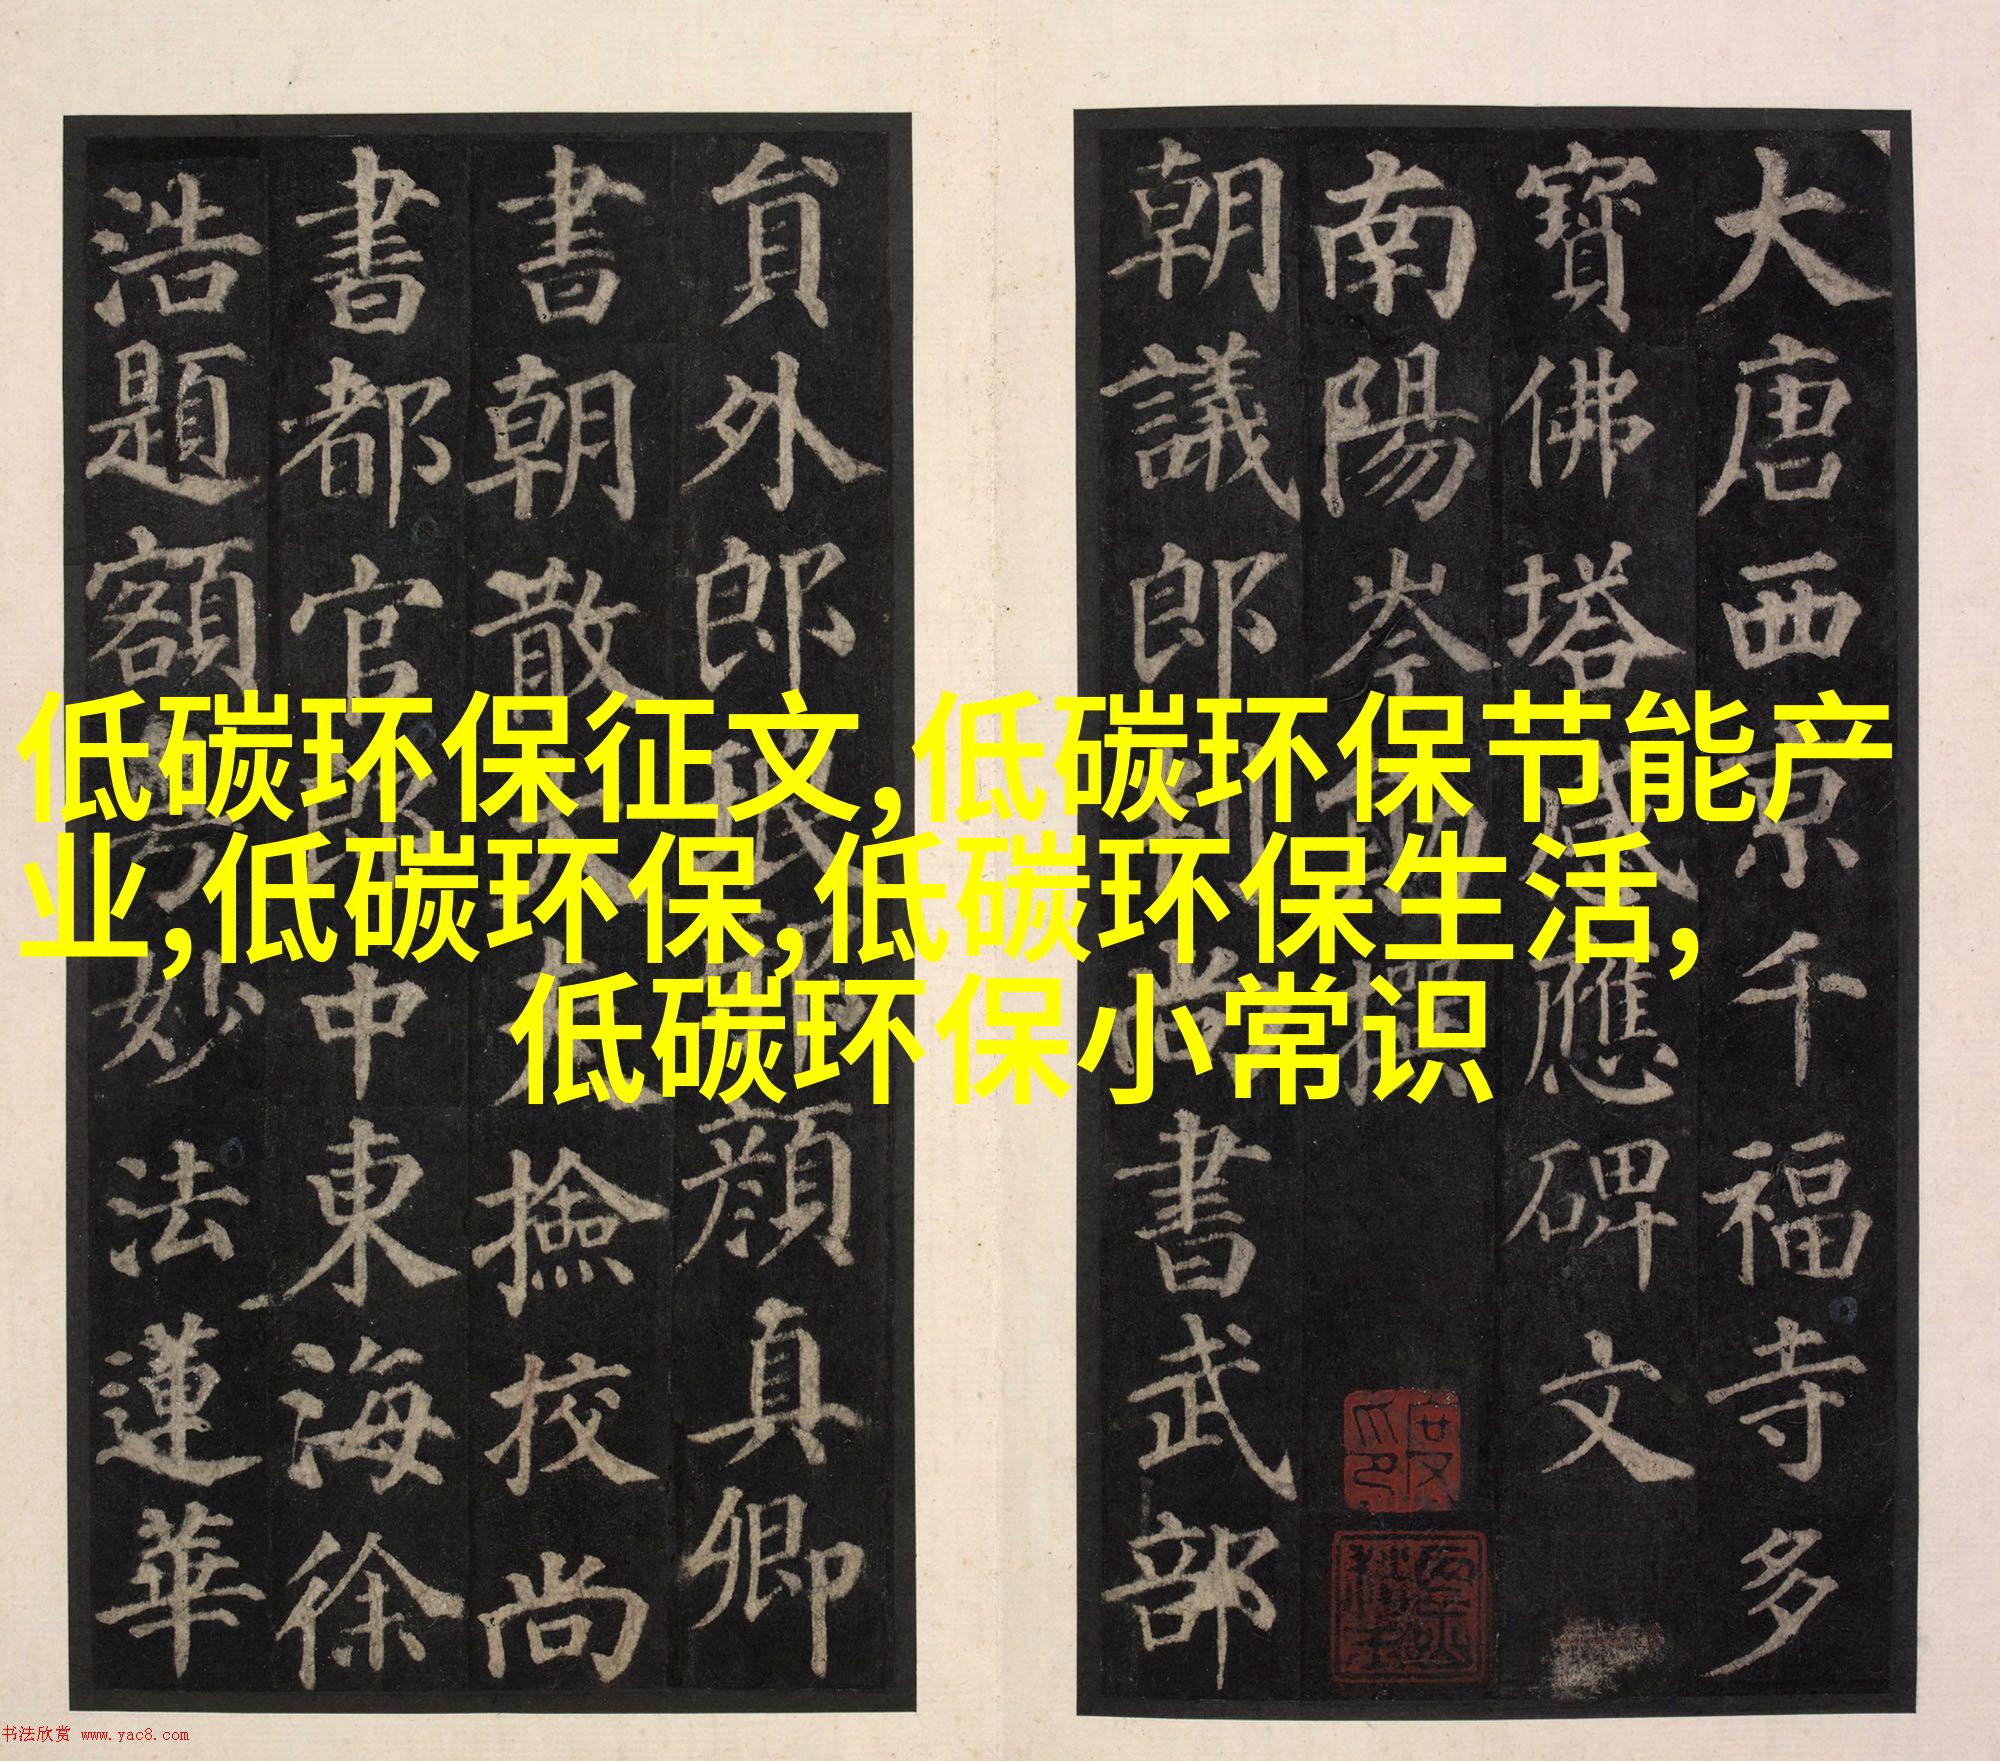 大唐西京千福寺多
寶佛塔感應碑文
南陽岑勛撰
朝議郎判尚書武部
貟外郎琅邪顏真卿
書朝散大夫撿校尚
書都官郎中東海徐
浩題額粵妙法蓮華
低碳环保征文,低碳环保节能产
业,低碳环保,低碳环保生活,
低碳环保小常识
书法欣赏 www.yac8.com